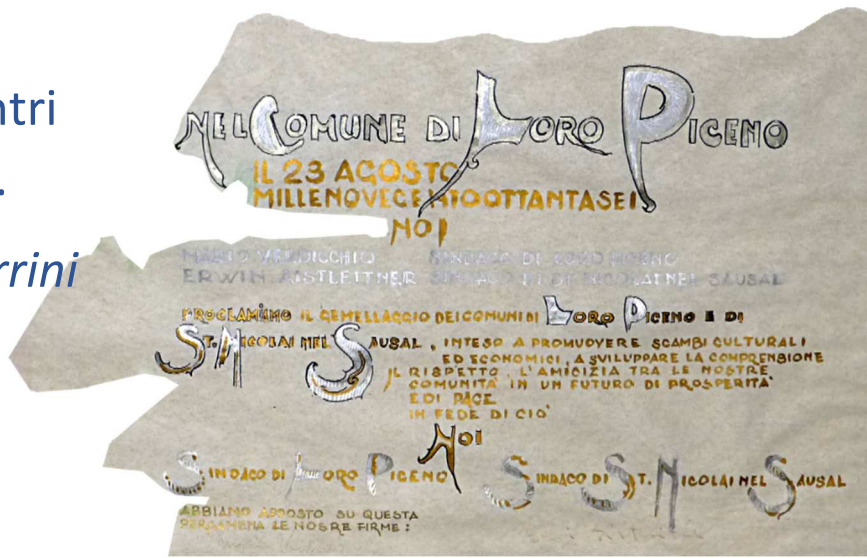 ntri
.
rrini
NEL COMUNE DI LORO PICENO
IL 23 AGOSTO
MILLENOVECENTOOTTANTASEI
NOI
MARIO VERDICCHIO SINDACO DI LORO PICENO
ERWIN AISTLEITNER SINDACO DI ST. NICOLAI NEL SAUSAL
PROCLAMIAMO IL GEMELLAGGIO DEI COMUNI DI LORO PICENO E DI
ST. NICOLAI NEL SAUSAL, INTESO A PROMUOVERE SCAMBI CULTURALI
ED ECONOMICI, A SVILUPPARE LA COMPRENSIONE
IL RISPETTO L'AMICIZIA TRA LE NOSTRE
COMUNITA' IN UN FUTURO DI PROSPERITA'
E DI PACE
IN FEDE DI CIO'
NOI
SINDACO DI LORO PICENO SINDACO DI ST. NICOLAI NEL SAUSAL
ABBIAMO APPOSTO SU QUESTA
PERGAMENA LE NOSRE FIRME: